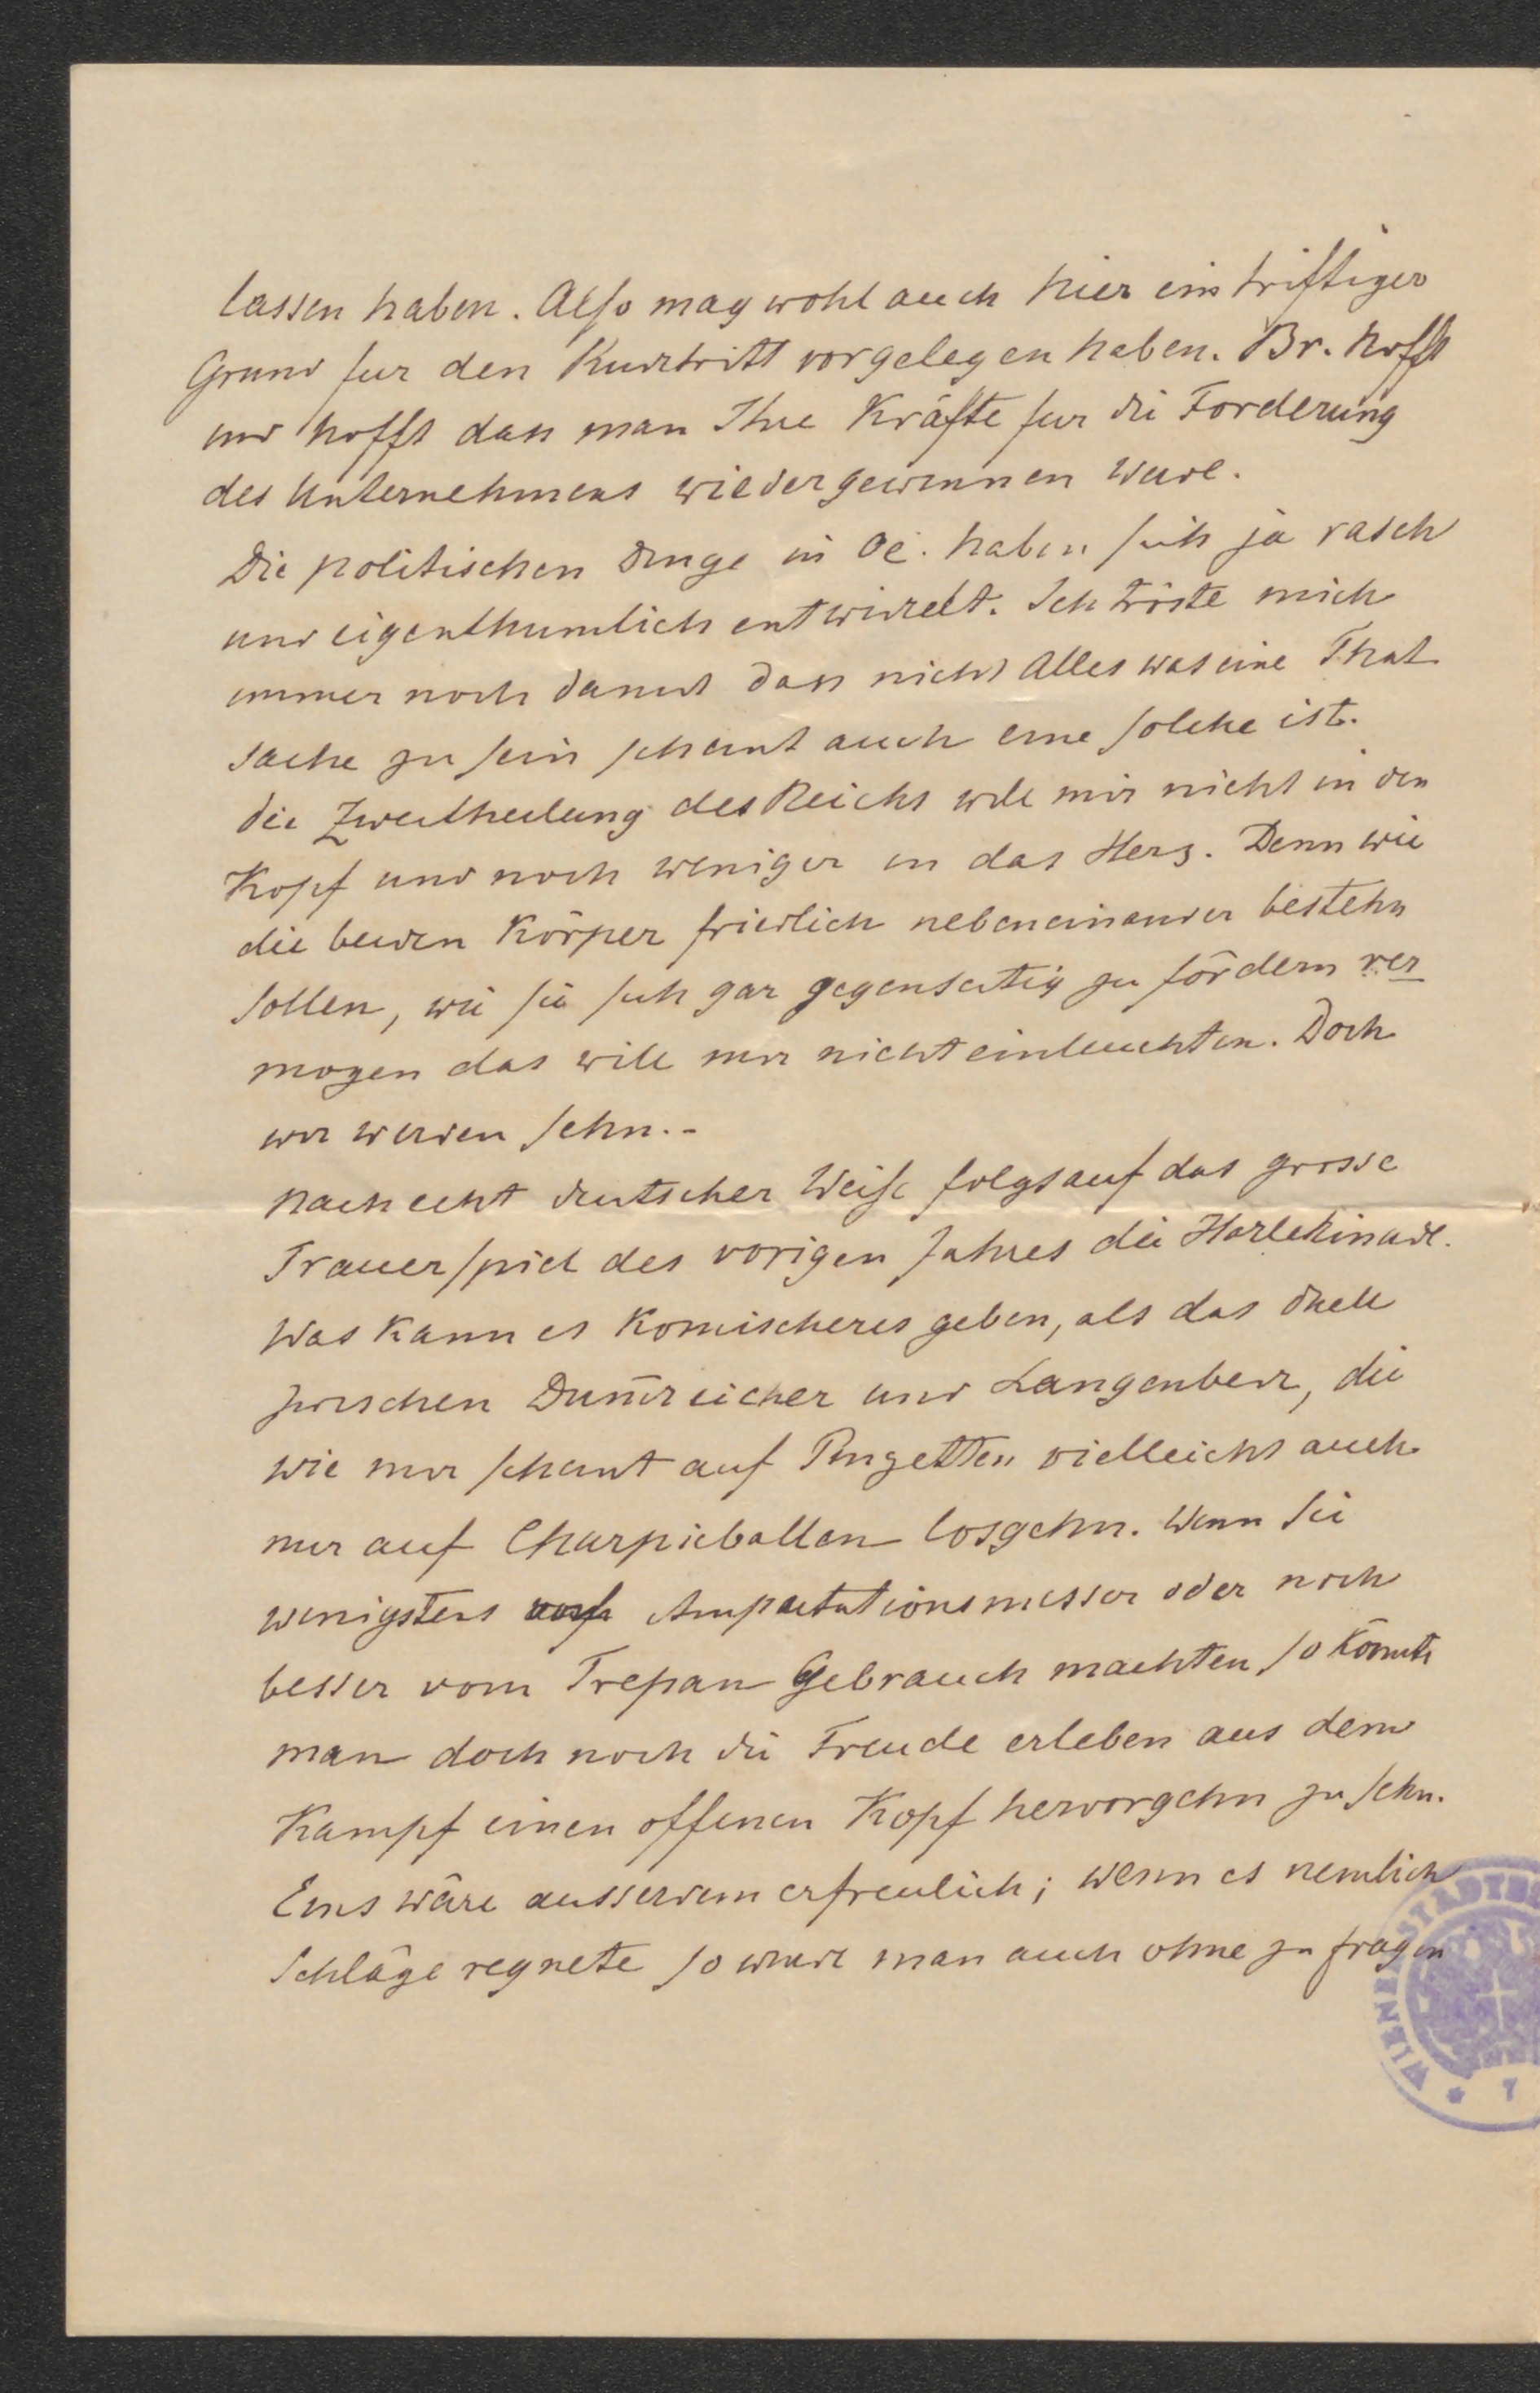 lassen haben. Also mag wohl auch hier ein triftiger
Grund fur den Rücktritt vorgelegen haben. Br. hofft
und hofft dass man Ihre Kräfte fur die Forderung
des Unternehmens wiedergewinnen werde.
Die politischen Dinge in Oe. haben sich ja rasch
und eigenthumlich entwickelt. Ich tröste mich
immer noch damit dass nicht Alles was eine That
sache zu sein scheint auch eine solche ist.
die Zweitheilung des Reichs will mir nicht in den
Kopf und noch weniger in das Herz. Denn wie
die beiden Körper friedlich nebeneinander bestehn
sollen, wie sie sich gar gegenseitig zu fördern ver
mogen das will mir nicht einleuchten. Doch
wir werden sehn. -
Nach echt deutscher Weise folgt auf das grosse
Trauerspiel des vorigen Jahres die Harlekinade.
Was kann es Komischeres geben, als das Duell
zwischen Dum̄reicher und Langenbeck, die
wie mir scheint auf Pinzetten vielleicht auch
nur auf Charpieballen losgehn. Wenn sie
wenigstens vom Amputationsmesser oder noch
besser vom Trepan Gebrauch machten, so könnte
man doch noch die Freude erleben aus dem
Kampf einen offenen Kopf hervorgehn zu sehn.
Eins wäre ausserdem erfreulich; wenn es nemlich
Schläge regnete so wurde man auch ohne zu fragen
WIENER STÄDTISCHE
* 7